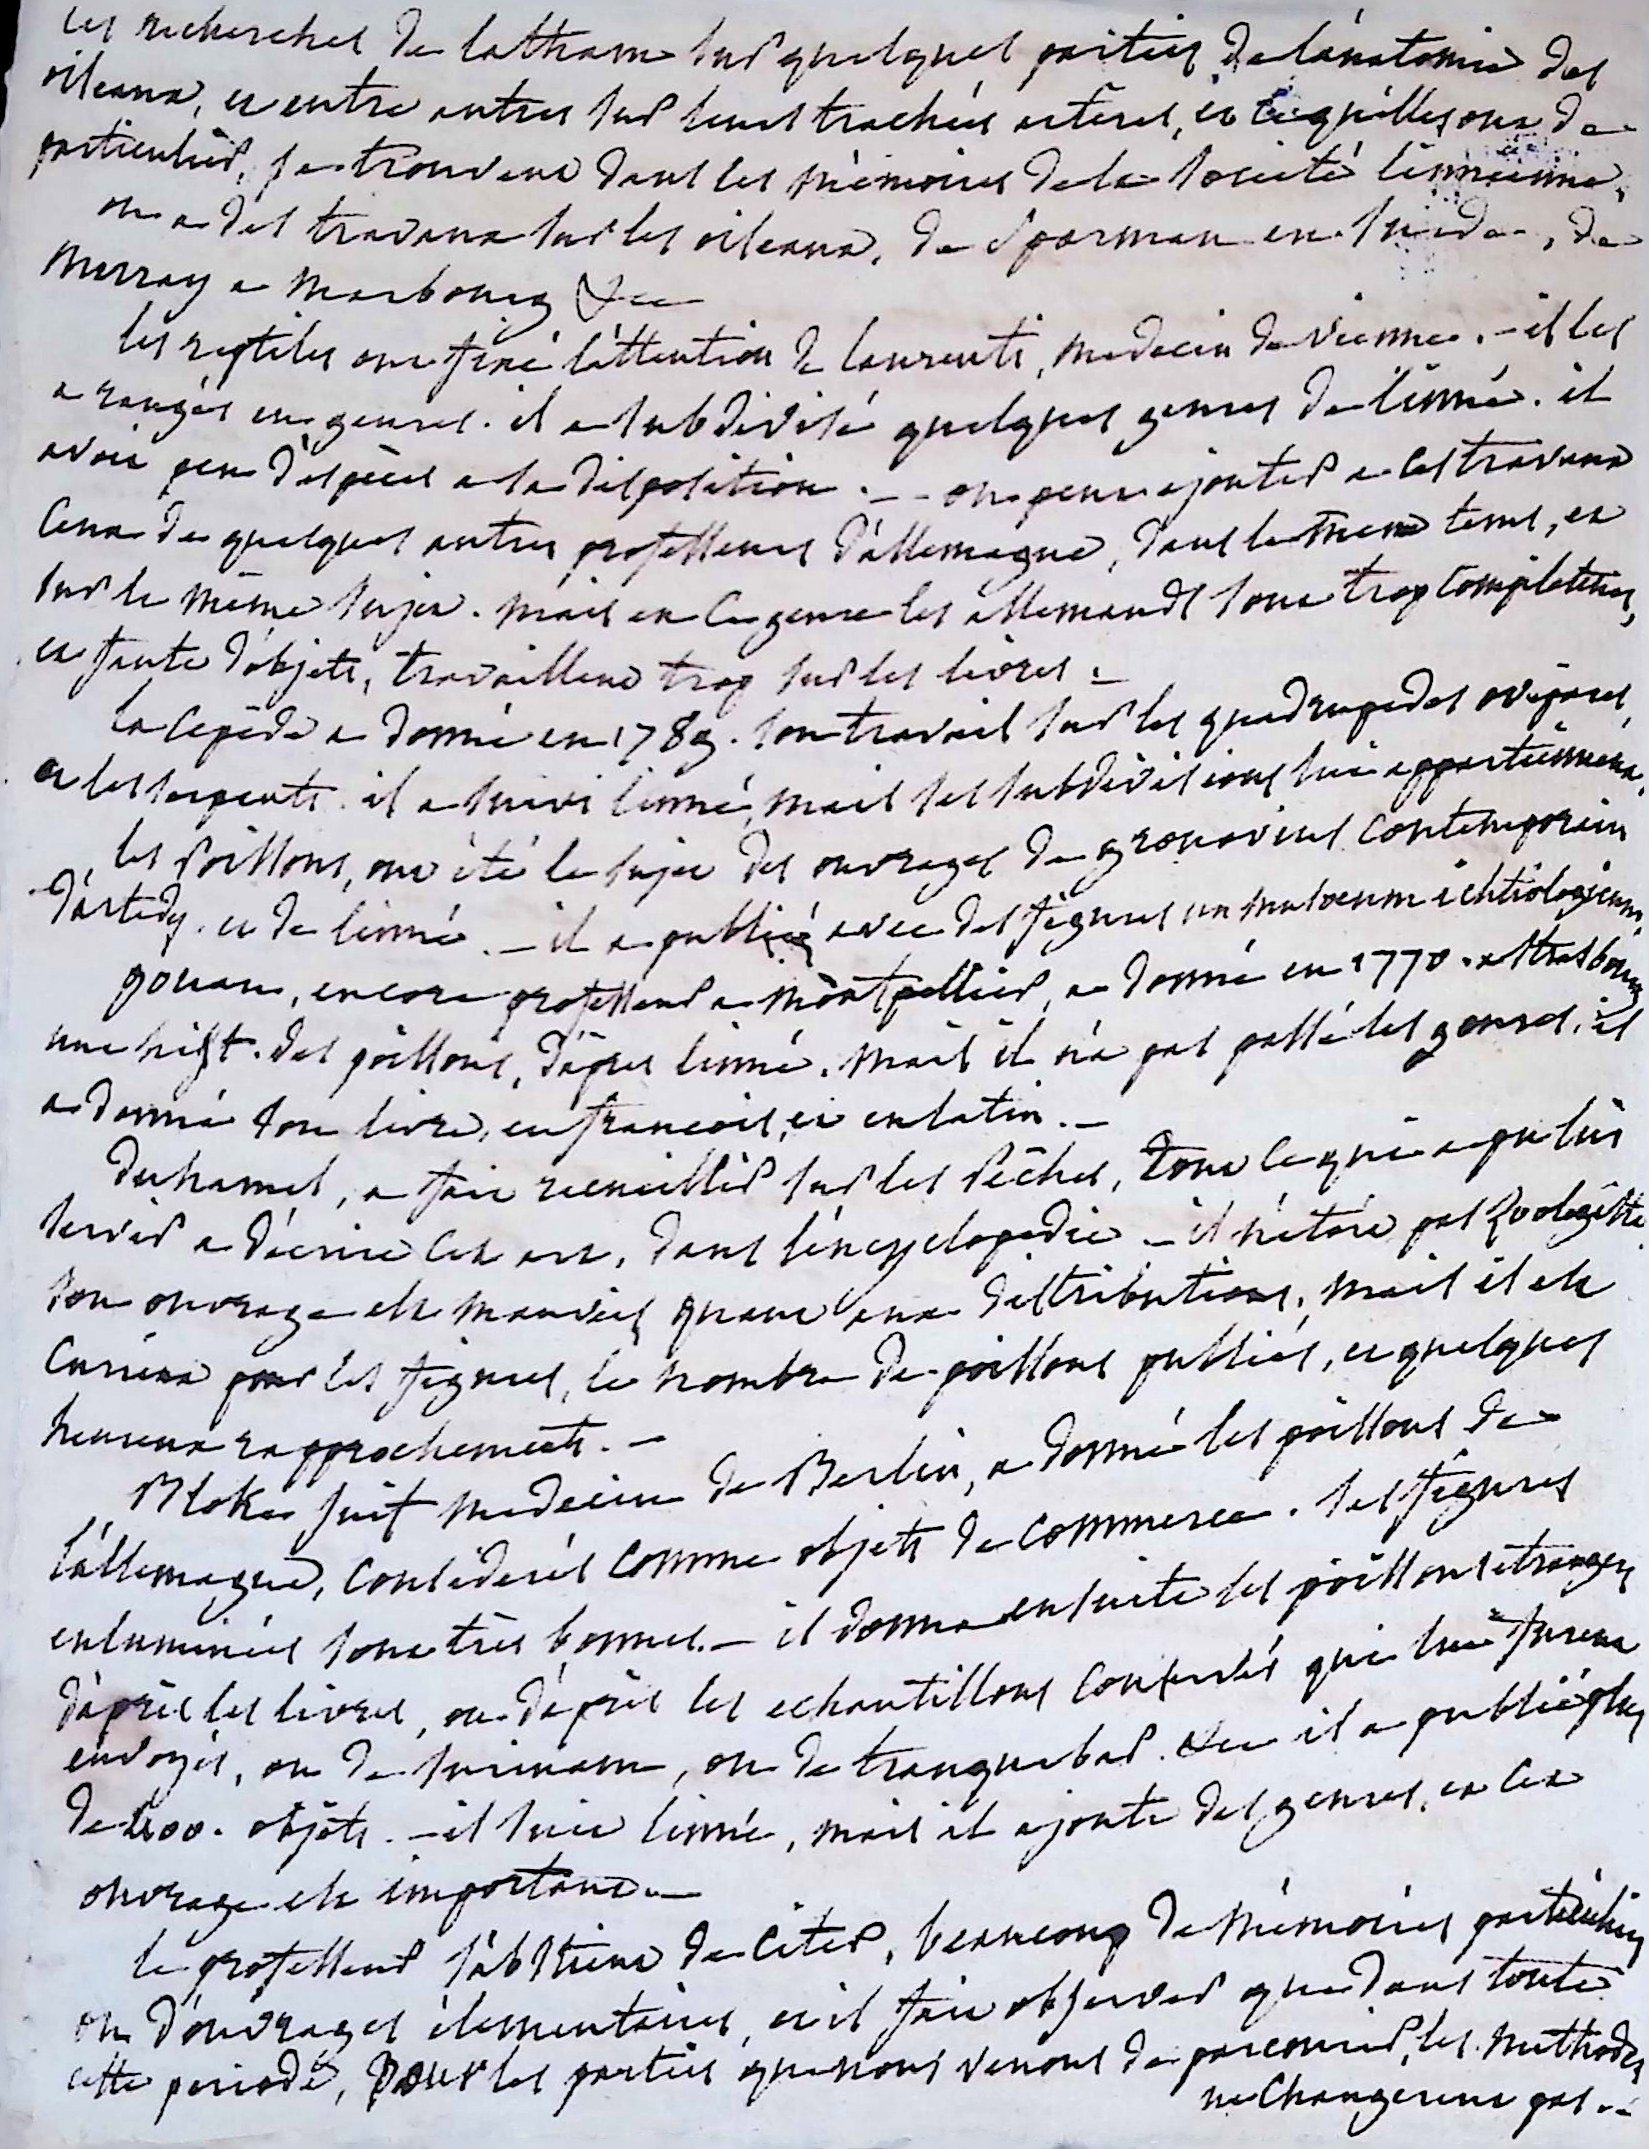 les recherches de latham sur quelques parties de l'anatomie des
oiseaux, et entre autres sur leurs trachées artères, et ce qu'elles ont de
particulier, se trouvent dans les mémoires de la société linnéenne,
on a des travaux sur les oiseaux, de Sparman en Suede, de
Murray a Marbourg &c
les reptiles ont fixé l'attention de laurenti, medecin de vienne. - il les
a rangés en genres. il a subdivisé quelques genres de linné. il
avoit peu d'espèces a sa disposition. - on peut ajouter a ces travaux
ceux de quelques autres professeurs d'allemagne, dans le meme tems, et
sur le même sujet. mais en ce genre les allemands sont trop compilateurs,
et faute d'objets, travaillent trop sur les livres. -
la Cepède a donné en 1789. son travail sur les quadrupedes ovipares,
et les serpents. il a suivi linné, mais ses subdivisions lui appartiennent.
les Poissons, ont été le sujet des ouvrages de gronovius contemporain
d'artedy. et de linné. - il a publié avec des figures un musoeum ichtiologicum,
gouan, encore professeur a Montpellier, a donné en 1770. a Strasbourg
une hist. des poissons, d'après linné. mais il n'a pas passé les genres. il
a donné son livre, en francois, et en latin. -
duhamel, a fait recueillir sur les Pêches, tout ce qui a pu lui
servir a décrire cet art, dans l'encyclopedie - il n'étoit pas zoologiste
son ouvrage est mauvais quant aux distributions, mais il est
curieux pour les figures, le nombre de poissons publiés, et quelques
heureux rapprochements. -
Bloke juif medecin de Berlin, a donné les poissons de
l'allemagne, considerés comme objets de commerce. ses figures
enluminées sont très bonnes. - il donna ensuite les poissons étrangers
d'après les livres, ou d'après les echantillons conservés qui lui furent
envoyés, ou de surinam, ou de tranquebar. &c il a publié plus
de 400. objets. - il suit linné, mais il ajoute des genres, et cet
ouvrage est important. -
le professeur s'abstient de citer, beaucoup de mémoires particuliers
ou d'ouvrages élementaires, et il fait observer que dans toute
cette periode, pour les parties que nous venons de parcourir, les methodes
ne changerent pas. -